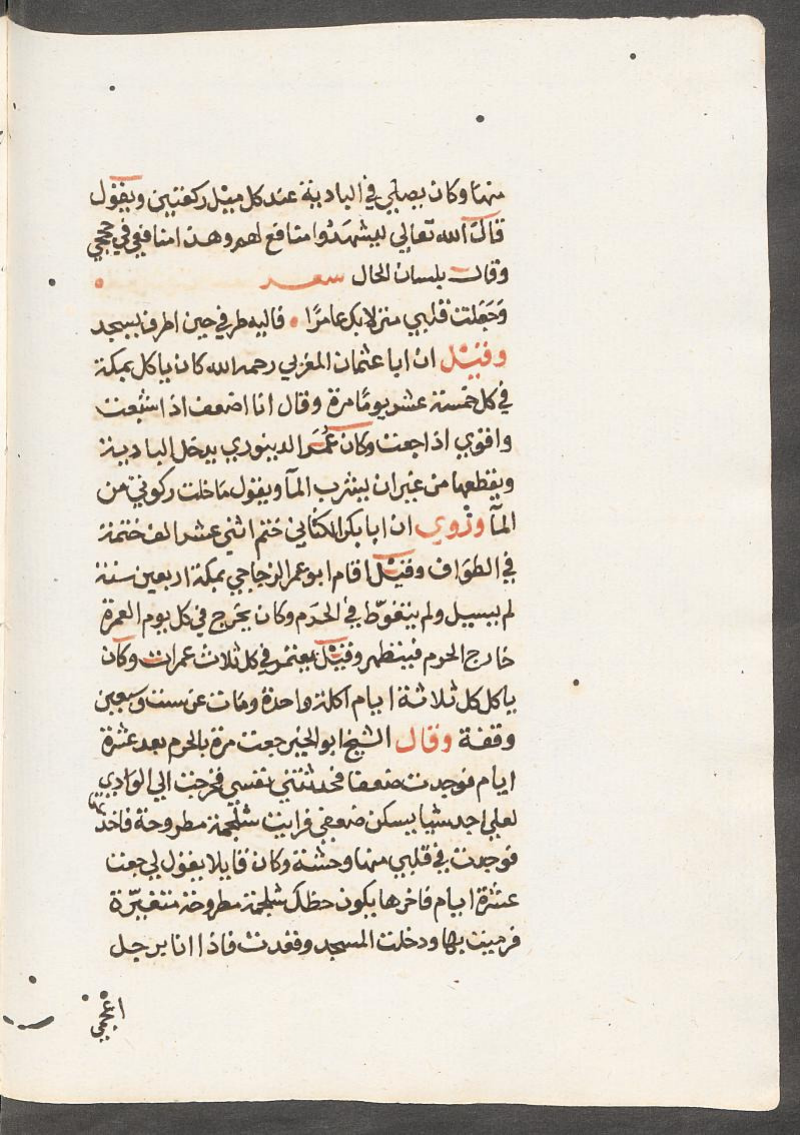 منها وكان يصلي في البادية عند كل ميل ركعتين ويقول
قال الله تعالي ليشهدوا منافع لهم وهذا منافعي في حجي
وقال بلسان الحال
وجعلت قلبي منزلا بك عامرًا فاليه طرفي حين اطرف يسجد
وقيل ان ابا عثمان المغربي رحمه الله كان ياكل بمكة
في كل خمسة عشر يومًا مرة وقال انا اضعف اذا شبعت
واقوي اذا جعت وكان عمر الدينوري يدخل البادية
ويقطعها من غير ان يشرب الما ويقول ما خلت ركوتي من
الما وروي ان ابا بكر الكتاني ختم اثني عشر الف ختمة
في الطواف وقيل اقام ابو عمر الزجاجي بمكة اربعين سنة
لم يبل ولم يتغوّط في الحرم وكان يخرج في كل يوم العمرة
خارج الحرم فيتطهر وقيل يعتمر في كل ثلاث عمرات وكان
ياكل كل ثلاثة ايام اكلة واحدة ومات عن ست وسبعين
وقفة وقال الشيخ ابو الخير جعت مرة بالحرم بعد عشرة
ايام فوجدت ضعفا فحدثتني نفسي فخرجت الي الوادي
لعلي اجد شيا يسكن ضعفي فرايت شلجمة مطروحة فاخذتها
فوجدت في قلبي منها وحشة وكان قايلا يقول لي جعت
عشرة ايام فاخرها يكون حظك شلجمة مطروحة متغيّرة
فرميت بها ودخلت المسجد وقعدت فاذا انا برجل
اعجمي